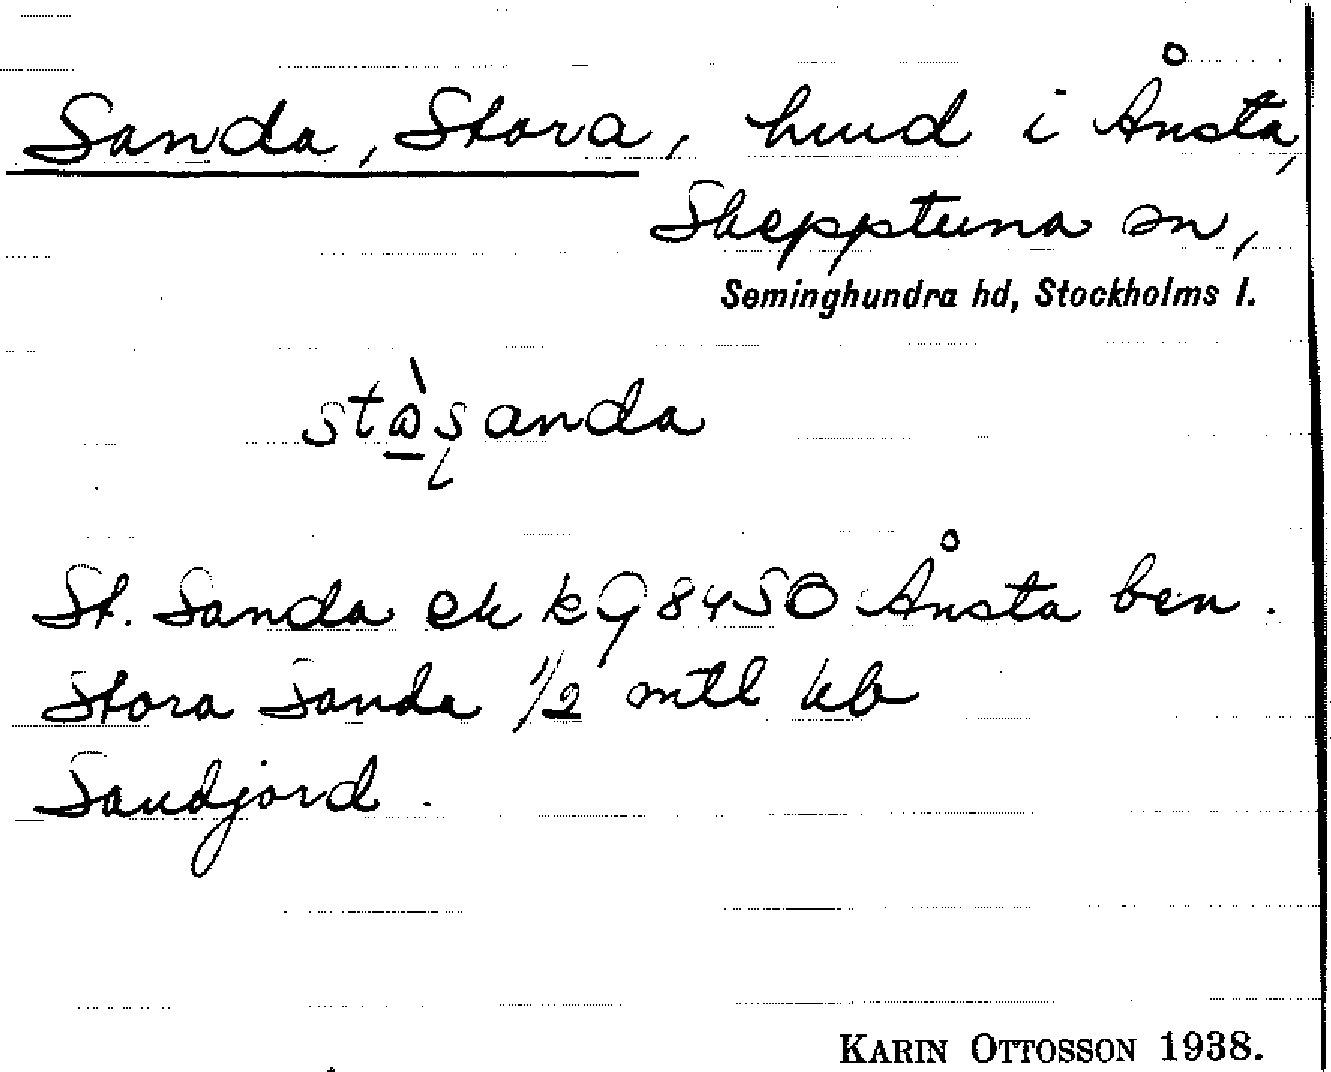 Sanda, Stora, hmd i Ånsta,
Skepptuna sn,
Seminghundra hd, Stockholms l.
St. Sanda ek kg 8450 Ånsta ben.
Stora Sanda 1/2 mtl kb
Sandjord.
KARIN OTTOSSON 1938.